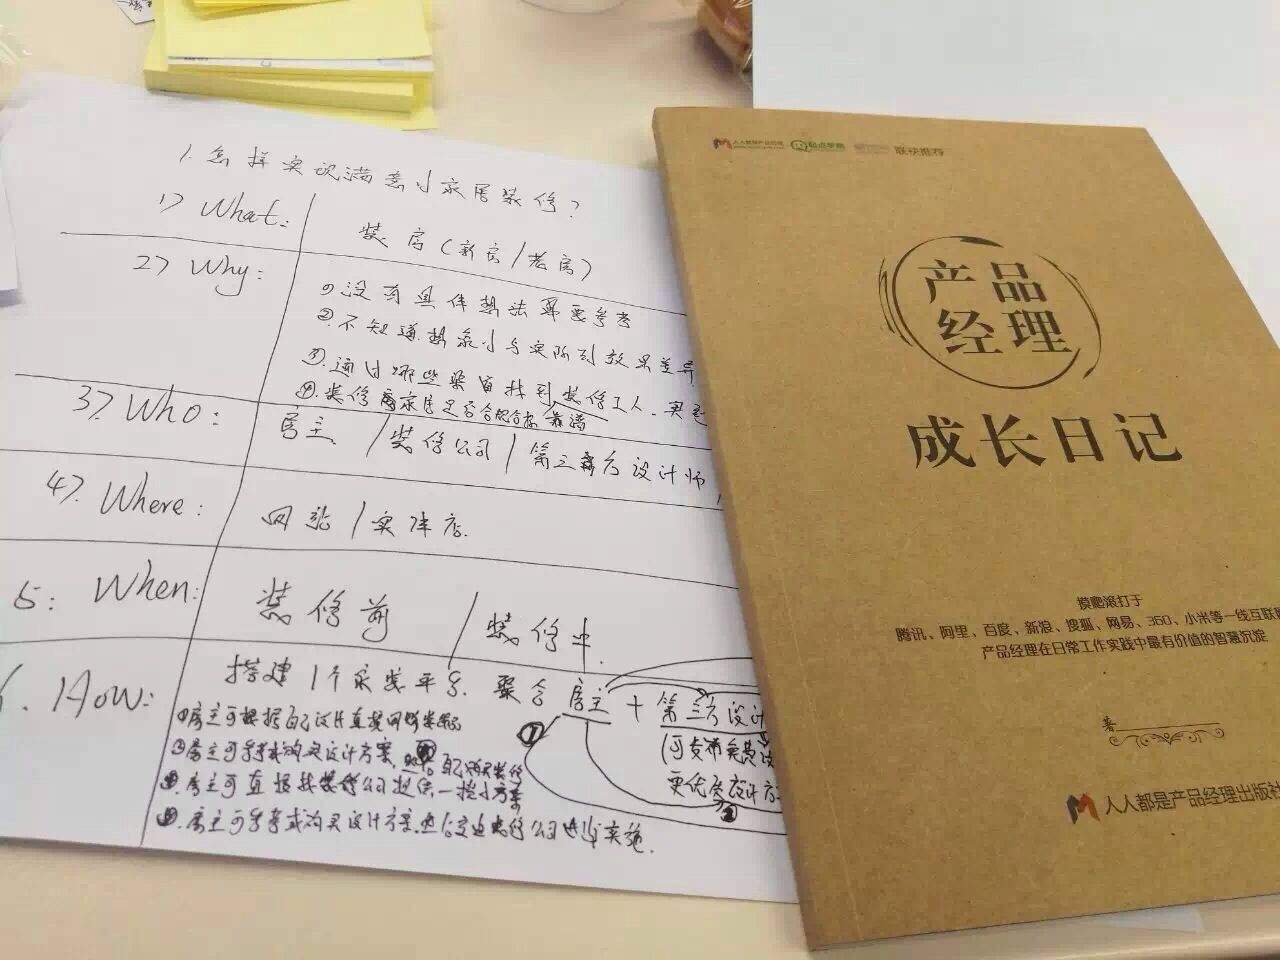 1. 怎样实现满意的家居装修?
1> What:
装房(新房/老房)
2> Why:
①没有具体想法需要参考
②.不知道想象的与实际的效果差异
③.通过哪些渠道找到装修工人、
④.装修 家居是否合规合标 靠谱
3> Who:
房主 / 装修公司 / 第三方设计师
4>. Where:
网站 / 实体店.
5: When:
装修前 / 装修中.
How:
搭建1个家装平台. 聚合房主 + 第三方设计
①房主可根据自己设计直接
(可发布免费
②房主可参考或购买设计方案, 自己购买装修
更优质设计方
③.房主可直接找装修公司提供一揽子方案
④.房主可参考或购买设计方案,
装修公司进行实施.
① ②
人人都是产品经理
起点学院
联袂推荐
产品
经理
成长日记
摸爬滚打于
腾讯、阿里、百度、新浪、搜狐、网易、360、小米等一线互联网
产品经理在日常工作实践中最有价值的智慧沉淀
著
人人都是产品经理出版社